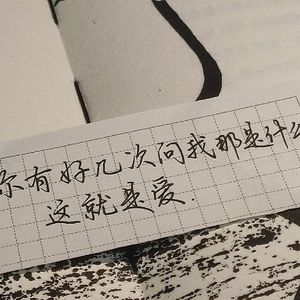 你有好几次问我那是什么
这就是爱